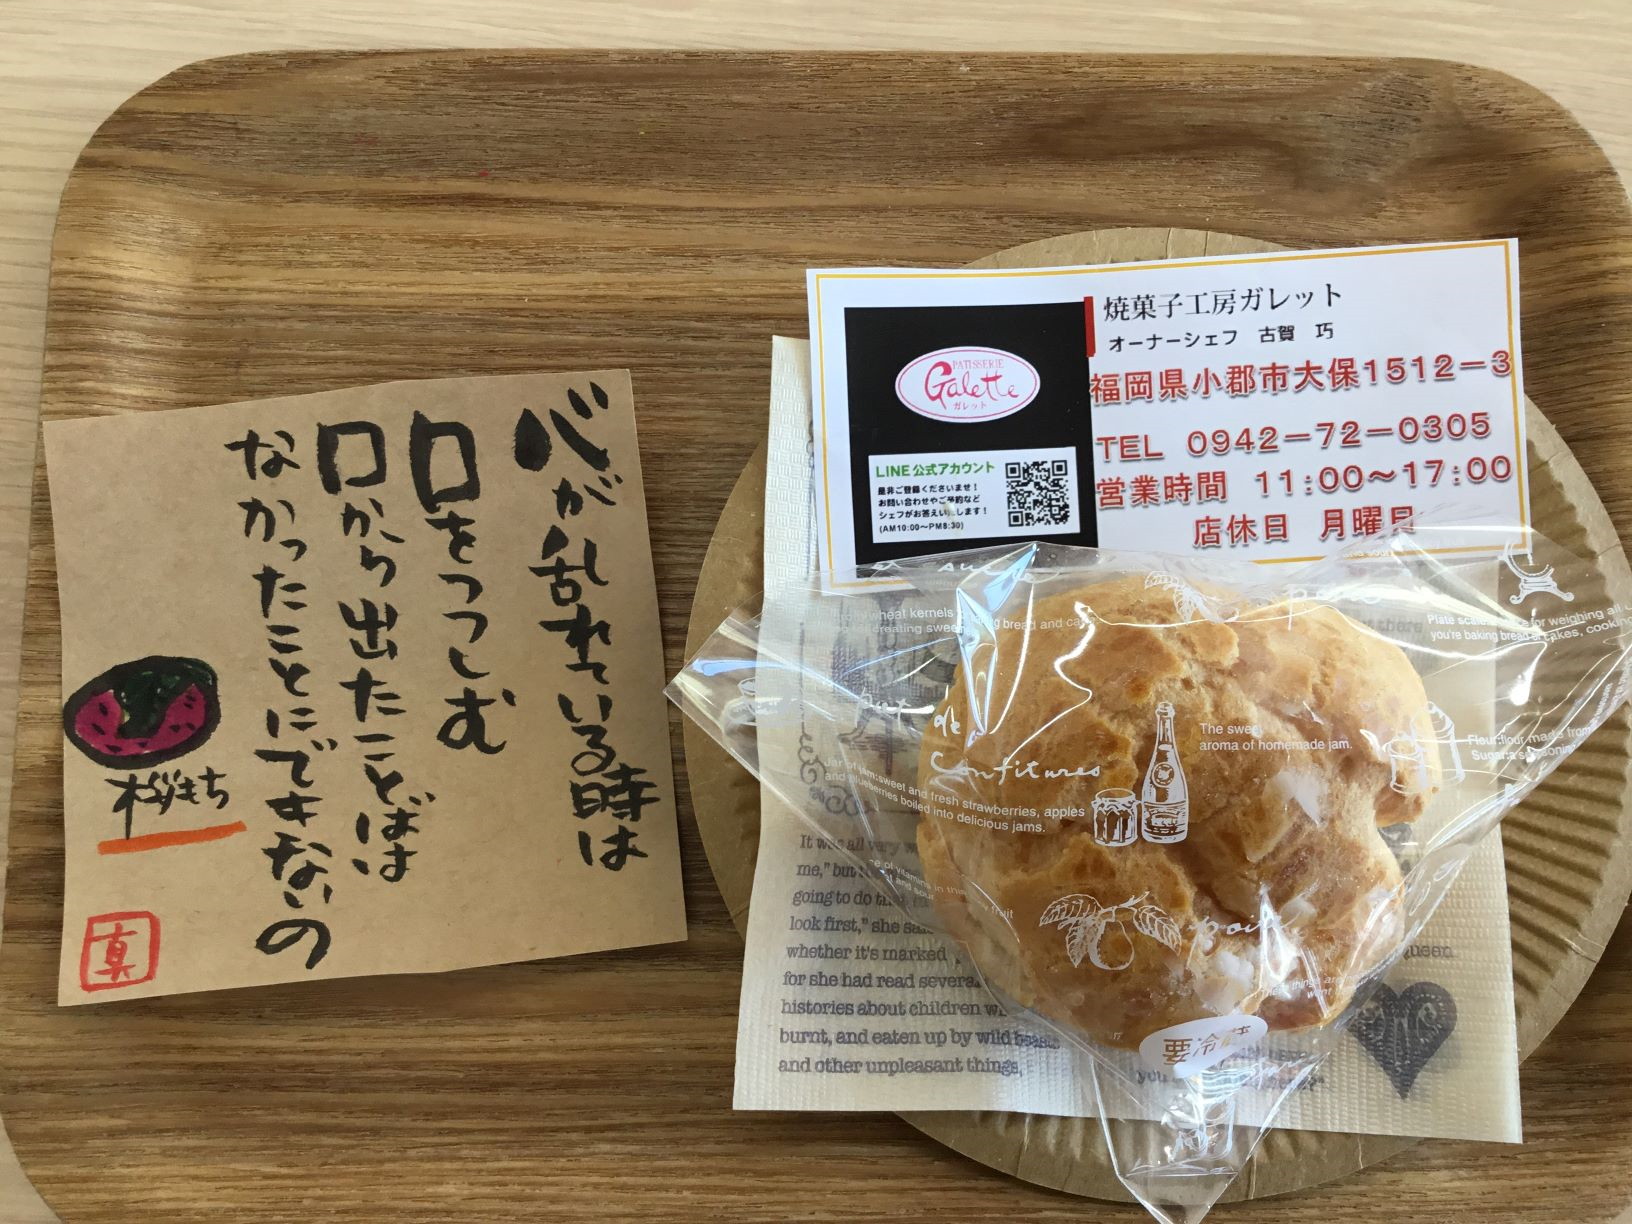 心が乱れている時は
口をつつしむ
口から出たことばは
なかったことにできないの
桜もち
真
焼菓子工房ガレット
オーナーシェフ 古賀 巧
福岡県小郡市大保1512-3
TEL 0942-72-0305
営業時間 11:00〜17:00
店休日 月曜日
PATISSERIE
Galette
ガレット
LINE公式アカウント
是非ご登録くださいませ！
お問い合わせやご予約など
シェフがお答えいたします！
(AM10:00〜PM8:30)
Plate scale
for weighing all
you're baking bread
cakes, cooking
wheat kernels
bread and cake
creating sweet
de
Confitures
The sweet
aroma of homemade jam.
Jar of jam:sweet and fresh strawberries, apples
and blueberries boiled into delicious jams.
Fleur:flour made from
Sugar:a seasoning
of vitamins in this
and sour
fruit
poire
要冷蔵
It was all very
me," but
going to do
look first," she
whether it's marked
for she had read several
histories about children
burnt, and eaten up by wild beasts
and other unpleasant things,
queen
you